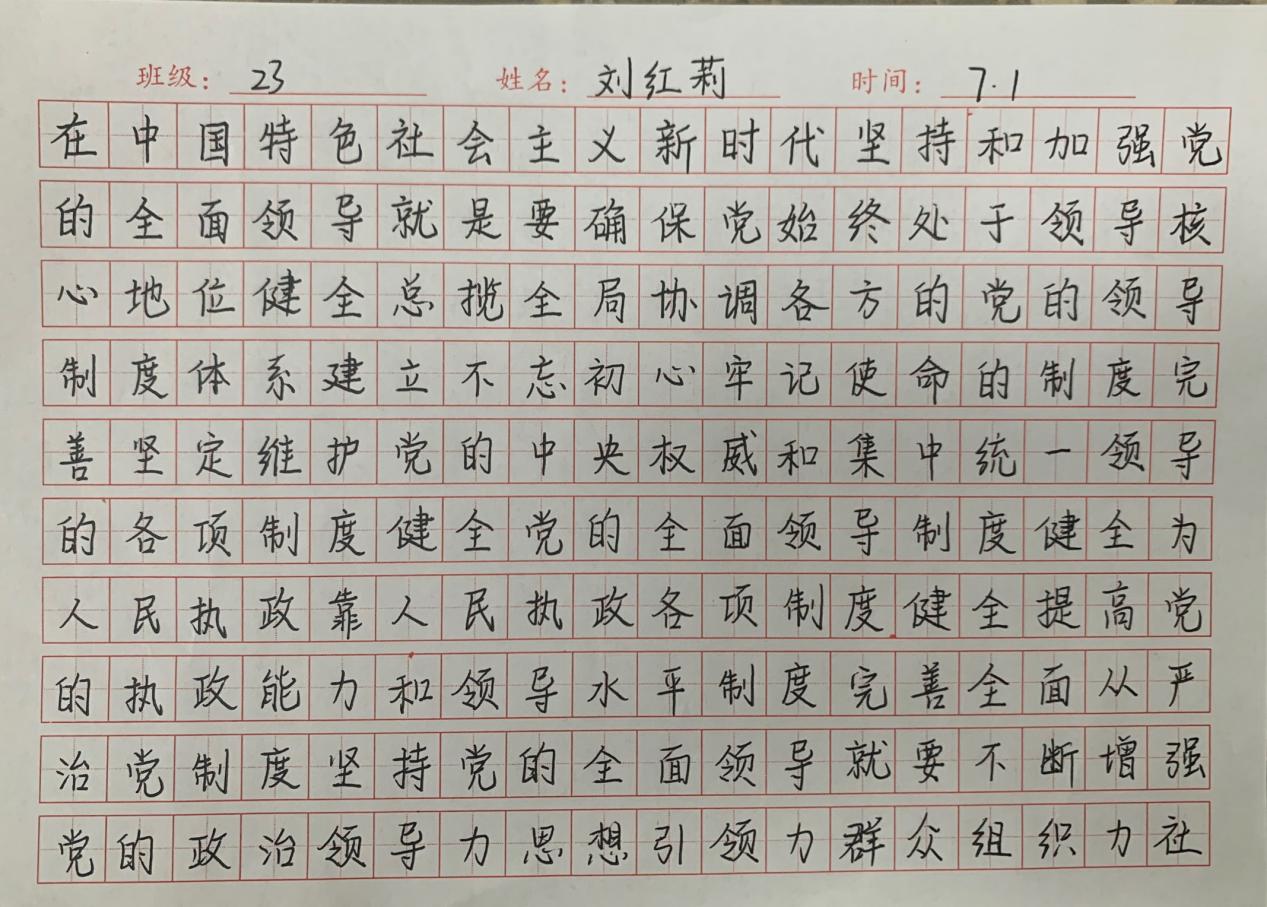 班级：23 姓名：刘红莉 时间：7.1
在中国特色社会主义新时代坚持和加强党
的全面领导就是要确保党始终处于领导核
心地位健全总揽全局协调各方的党的领导
制度体系建立不忘初心牢记使命的制度完
善坚定维护党的中央权威和集中统一领导
的各项制度健全党的全面领导制度健全为
人民执政靠人民执政各项制度健全提高党
的执政能力和领导水平制度完善全面从严
治党制度坚持党的全面领导就要不断增强
党的政治领导力思想引领力群众组织力社